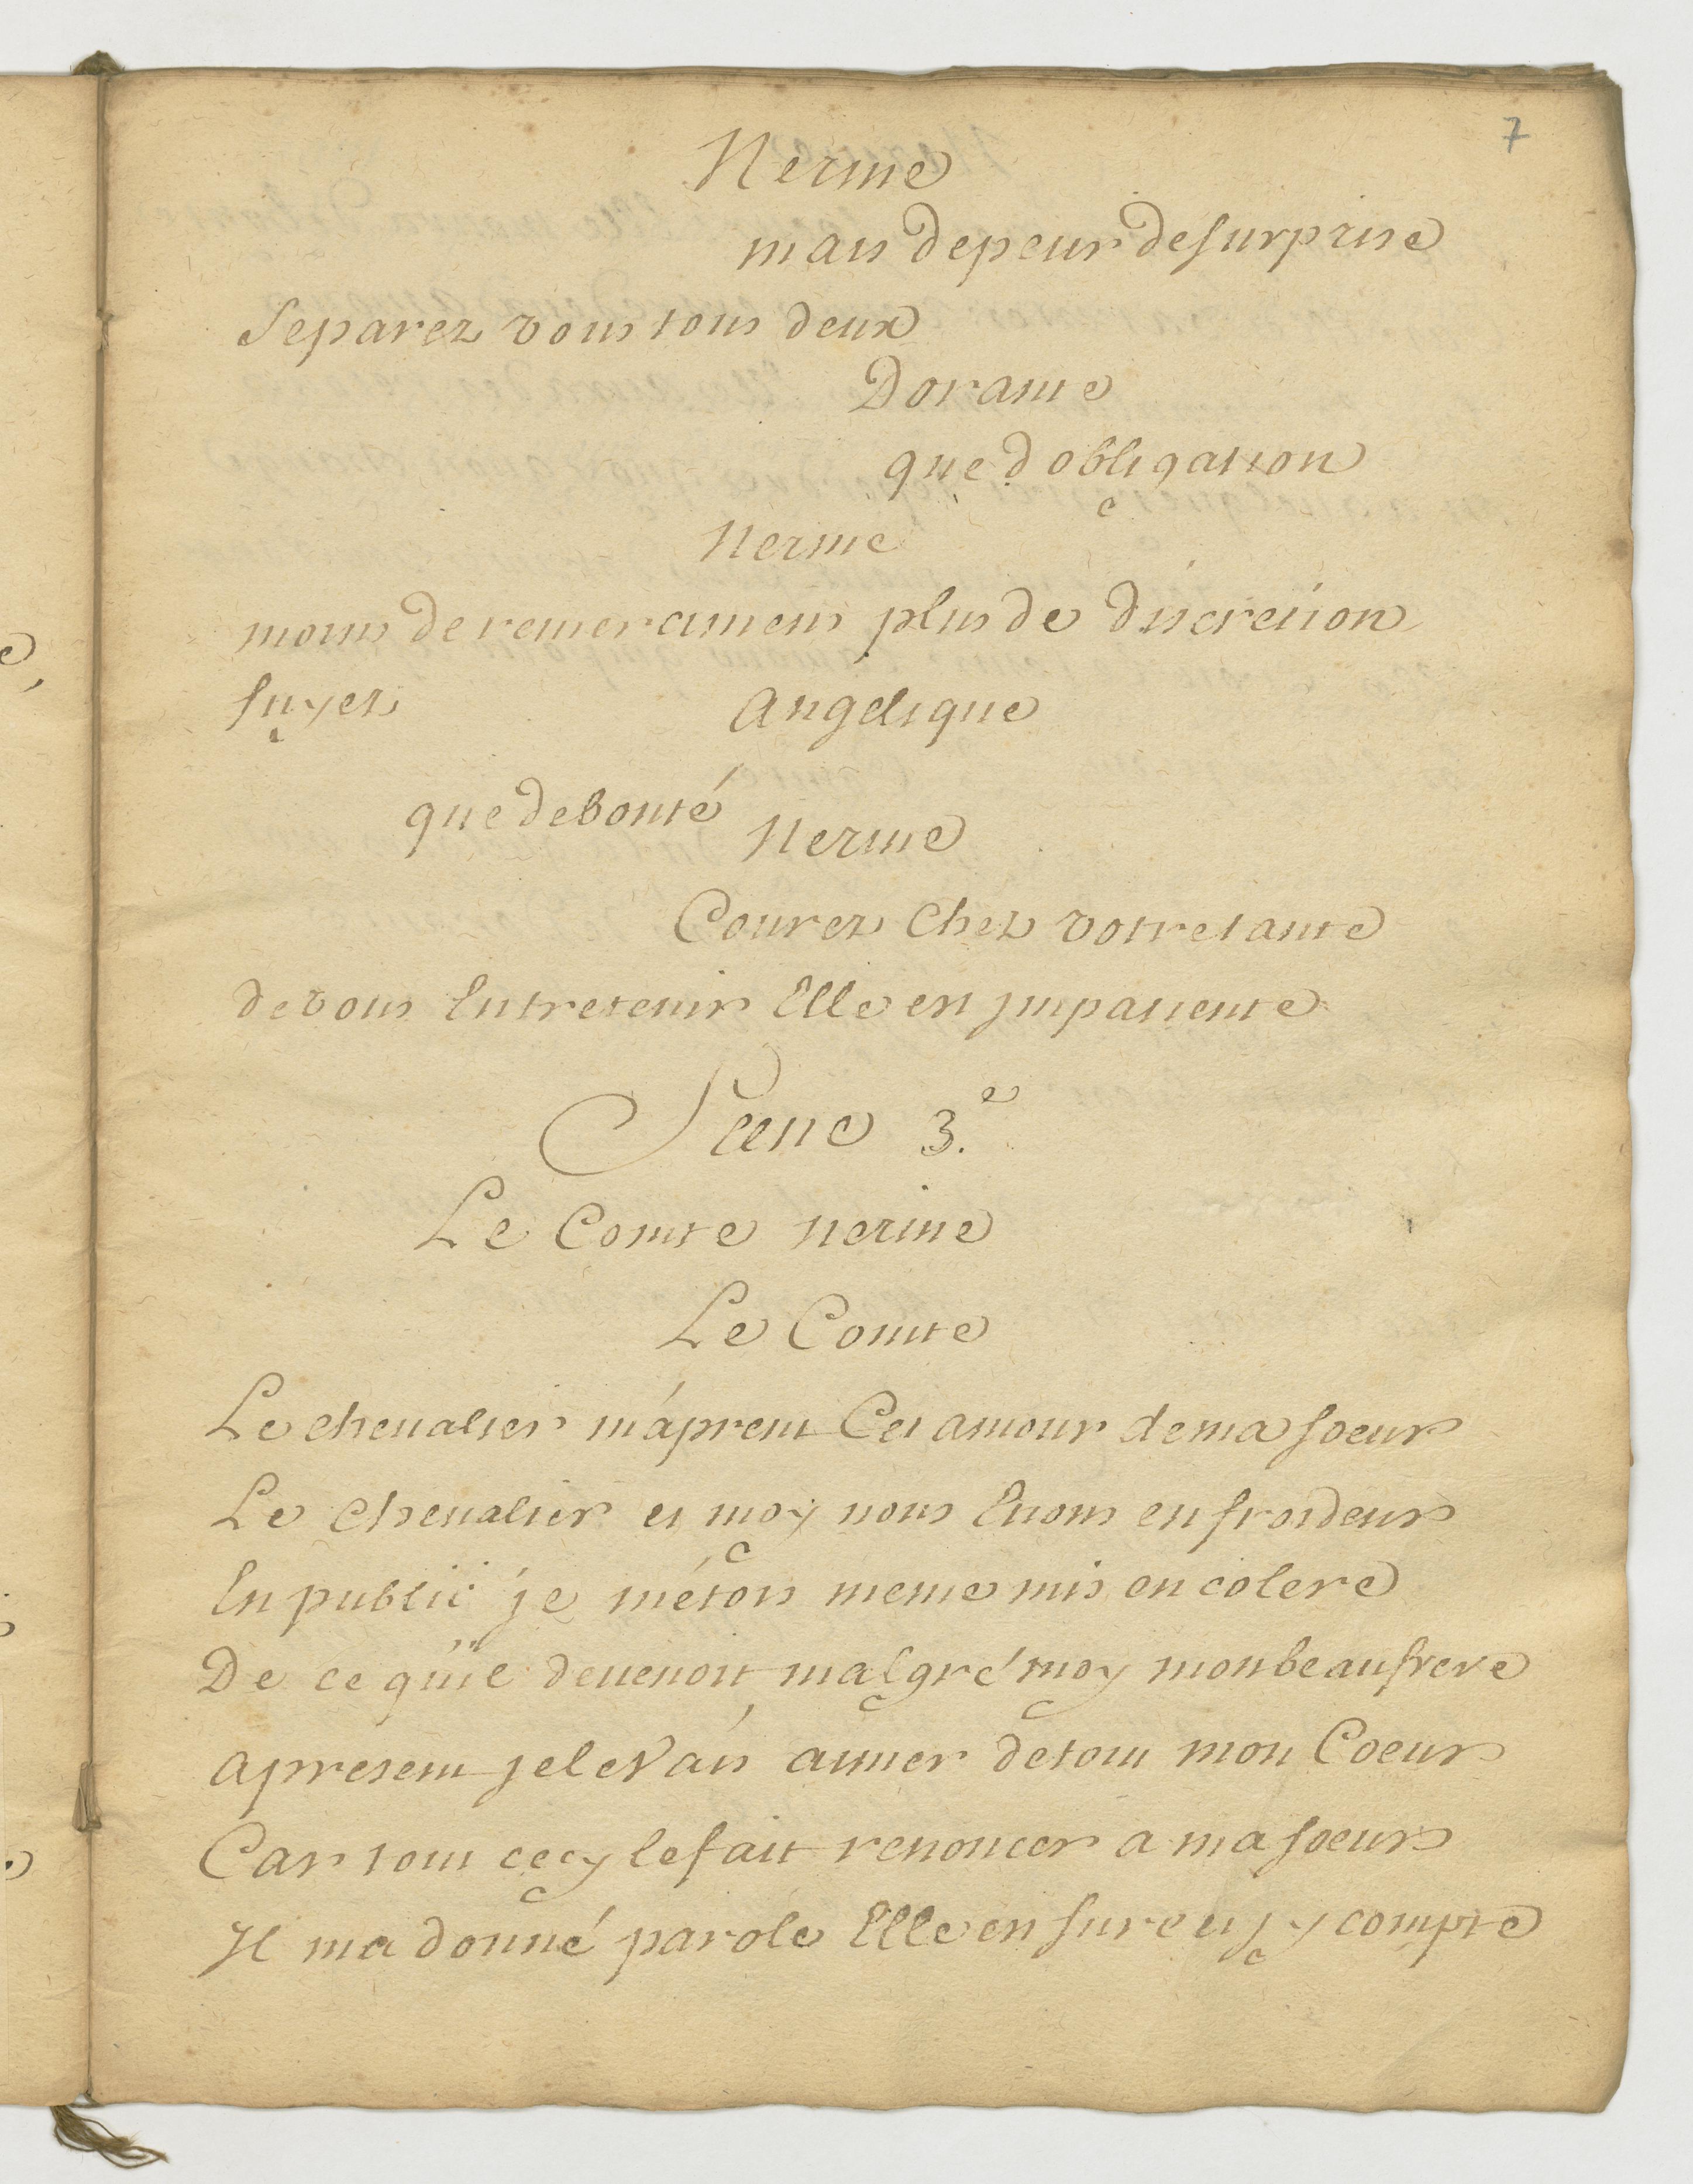 7
Nerine
mais de peur de surprise
Separez vous tous deux
Dorante
que d obligation
Nerine
moins de remerciment plus de discretion
fuyez Angelique
que de bonté
Nerine
Courez chez votre tante
de vous Entretenir Elle est jmpatiente
Scene 3.e
Le Comte nerine
Le Comte
Le chevalier m'aprent Cet amour de ma soeur
Le chevalier et moy nous Etions en froideur
En public je m'étois meme mis en colere
De ce qu'il devenoit malgré moy mon beaufrere
apresent je le vais aimer de tout mon Coeur
Car tout cecy le fait renoncer a ma soeur
Il ma donné parole Elle est sure et j y compte